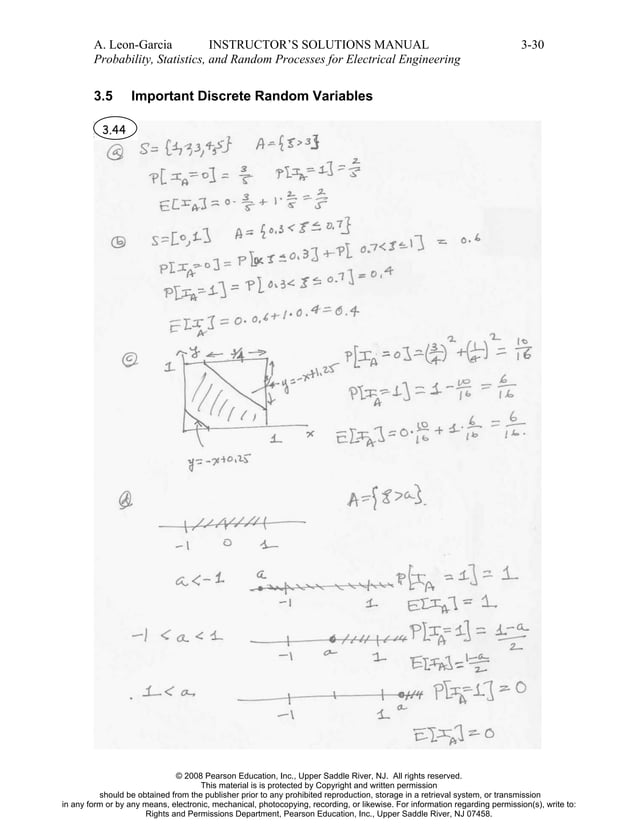 A. Leon-Garcia INSTRUCTOR'S SOLUTIONS MANUAL 3-30
Probability, Statistics, and Random Processes for Electrical Engineering
3.5 Important Discrete Random Variables
3.44
(a) S={1,2,3,4,5} A={ξ>3}
P[I_A=0] = 3/5 P[I_A=1] = 2/5
E[I_A] = 0·3/5 + 1·2/5 = 2/5
(b) S=[0,1] A={0.3<ξ≤0.7}
P[I_A=0] = P[0<ξ≤0.3]+P[0.7<ξ≤1] = 0.6
P[I_A=1] = P[0.3<ξ≤0.7]=0.4
E[I_A] = 0·0.6+1·0.4=0.4
(c) y ← 3/4 → P[I_A=0]=(3/4)²+(1/4)² = 10/16
1 3/4 y=-x+1.25
P[I_A=1] = 1-10/16 = 6/16
1 x E[I_A]=0·10/16 + 1·6/16 = 6/16.
y=-x+0.25
(d) A={ξ>a}.
-1 0 1
a<-1 a -1 1 P[I_A=1]=1
E[I_A]=1.
-1<a<1 -1 a 1 P[I_A=1]=1-a/2
E[I_A]=1-a/2
1<a -1 1 a P[I_A=1]=0
E[I_A]=0
© 2008 Pearson Education, Inc., Upper Saddle River, NJ. All rights reserved.
This material is is protected by Copyright and written permission
should be obtained from the publisher prior to any prohibited reproduction, storage in a retrieval system, or transmission
in any form or by any means, electronic, mechanical, photocopying, recording, or likewise. For information regarding permission(s), write to:
Rights and Permissions Department, Pearson Education, Inc., Upper Saddle River, NJ 07458.